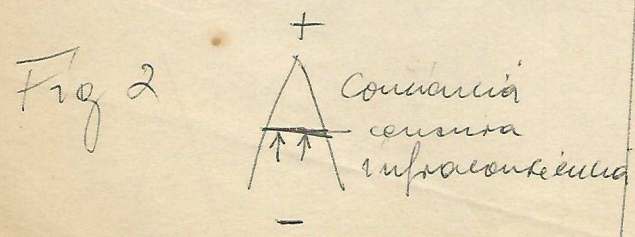 +
Fig 2
Consciencia
censura
infraconsciencia
-